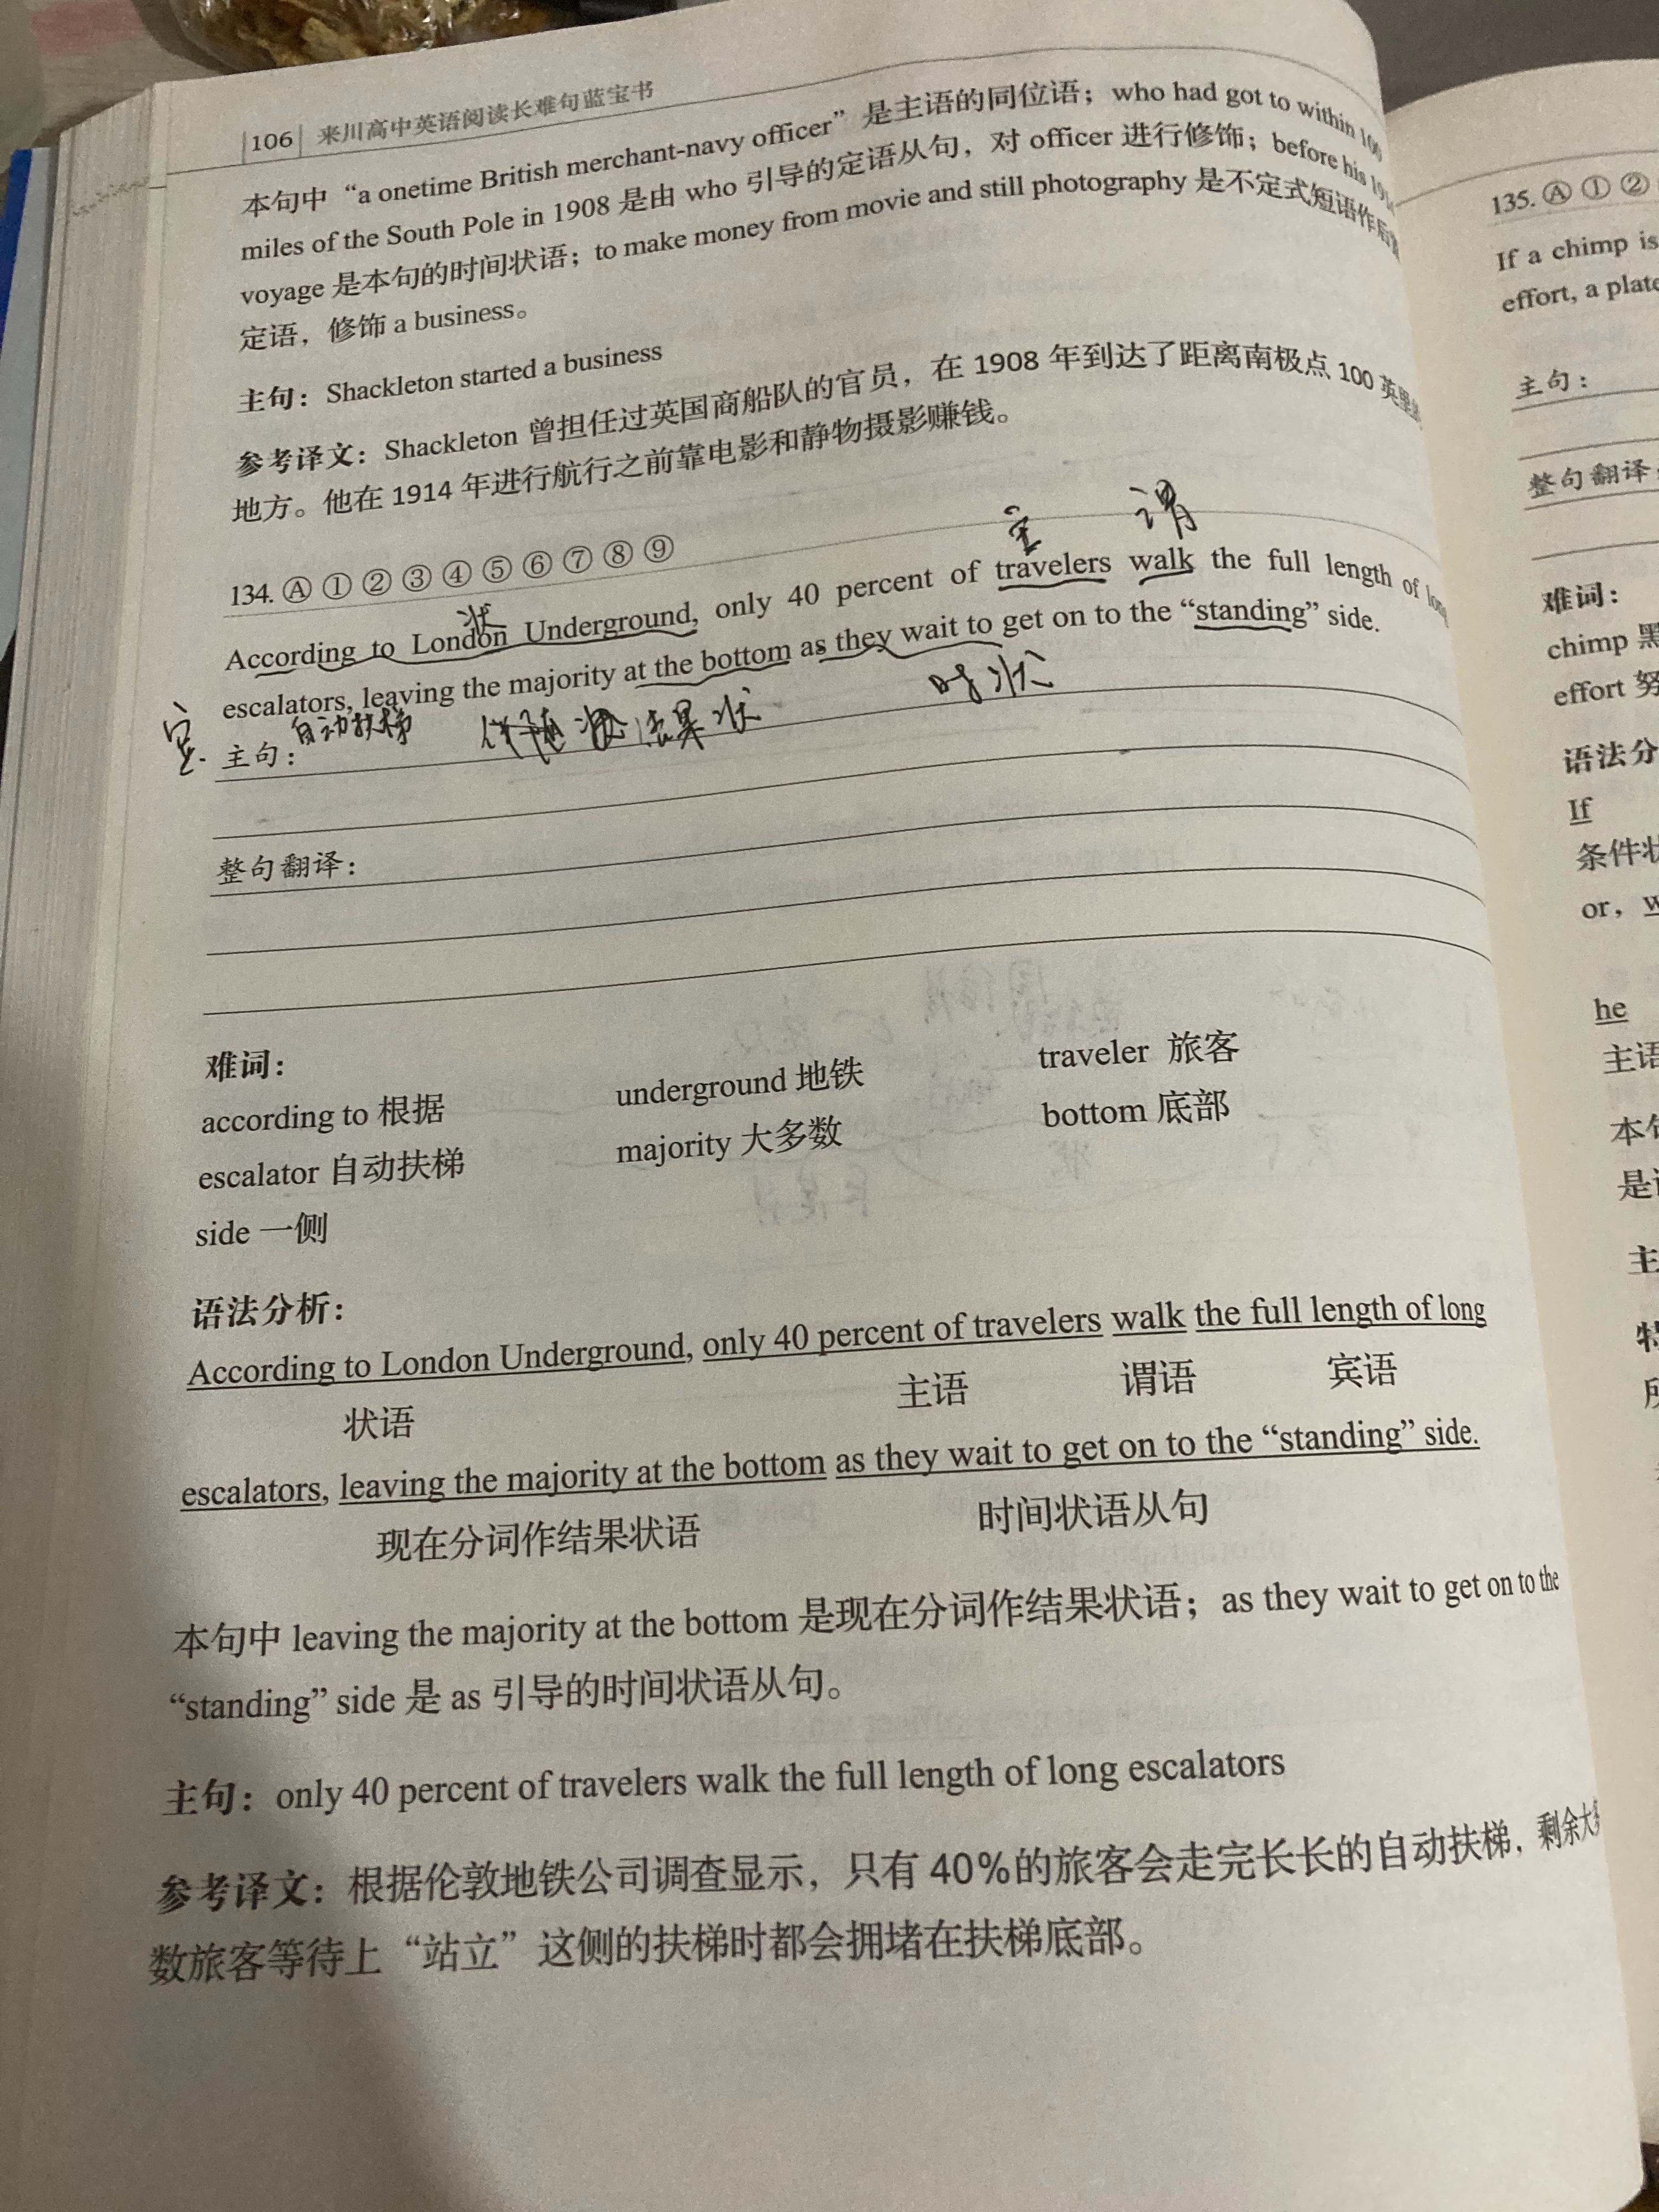 106 来川高中英语阅读长难句蓝宝书
本句中 “a onetime British merchant-navy officer” 是主语的同位语；who had got to within 100
miles of the South Pole in 1908 是由 who 引导的定语从句，对 officer 进行修饰；before his
voyage 是本句的时间状语；to make money from movie and still photography 是不定式短语作后置
定语，修饰 a business。
主句：Shackleton started a business
参考译文：Shackleton 曾担任过英国商船队的官员，在 1908 年到达了距离南极点 100 英里的
地方。他在 1914 年进行航行之前靠电影和静物摄影赚钱。
主 谓
134. Ⓐ ① ② ③ ④ ⑤ ⑥ ⑦ ⑧ ⑨
状
According to London Underground, only 40 percent of travelers walk the full length of long
escalators, leaving the majority at the bottom as they wait to get on to the “standing” side.
宾 自动扶梯 结果状 时状
主句：
整句翻译：
难词：
according to 根据 underground 地铁 traveler 旅客
escalator 自动扶梯 majority 大多数 bottom 底部
side 一侧
语法分析：
According to London Underground, only 40 percent of travelers walk the full length of long
状语 主语 谓语 宾语
escalators, leaving the majority at the bottom as they wait to get on to the “standing” side.
现在分词作结果状语 时间状语从句
本句中 leaving the majority at the bottom 是现在分词作结果状语；as they wait to get on to the
“standing” side 是 as 引导的时间状语从句。
主句：only 40 percent of travelers walk the full length of long escalators
参考译文：根据伦敦地铁公司调查显示，只有 40%的旅客会走完长长的自动扶梯，剩余大多
数旅客等待上“站立”这侧的扶梯时都会拥堵在扶梯底部。
135. Ⓐ ① ②
If a chimp is
effort, a plate
主句：
整句翻译
难词：
chimp 黑
effort 努
语法分
If
条件状
or, w
he
主语
本句
是
主